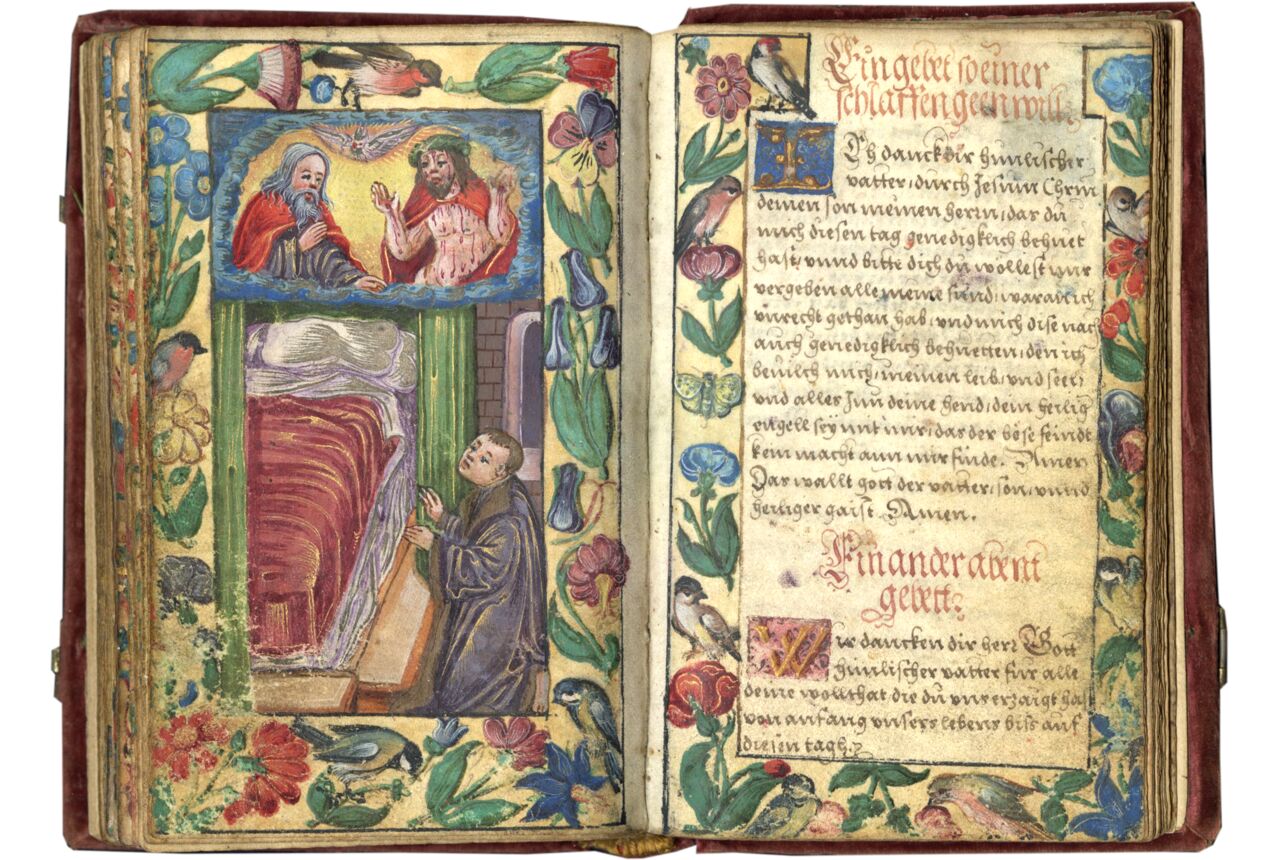 Ein gebet so einer
schlaffen geen will.
Ich danck dir himlischer
vatter, durch Jesum Chrm
deinen son meinen herrn, das du
mich diesen tag genedigklich behuet
hast, vnnd bitte dich du wollest mir
vergeben alle meine sünd, waran ich
vnrecht gethan hab, vnd mich dise nach
auch genedigklich behuetten, den ich
beuilch mich, meinen leib, vnd seel,
vnd alles Inn deine hend, dein heilig
engell sey mit mir, das der böse feindt
kein macht ann mir finde. Amen
Das wallt gott der vatter, son, vnnd
heiliger gaist. Amen.
Ein ander abent
gebett.
Wir dancken dir herr Gott
himlischer vatter für alle
deine wollthat die du vns erzaigt hast
von anfang vnsers lebens biss auf
diesen tagh.